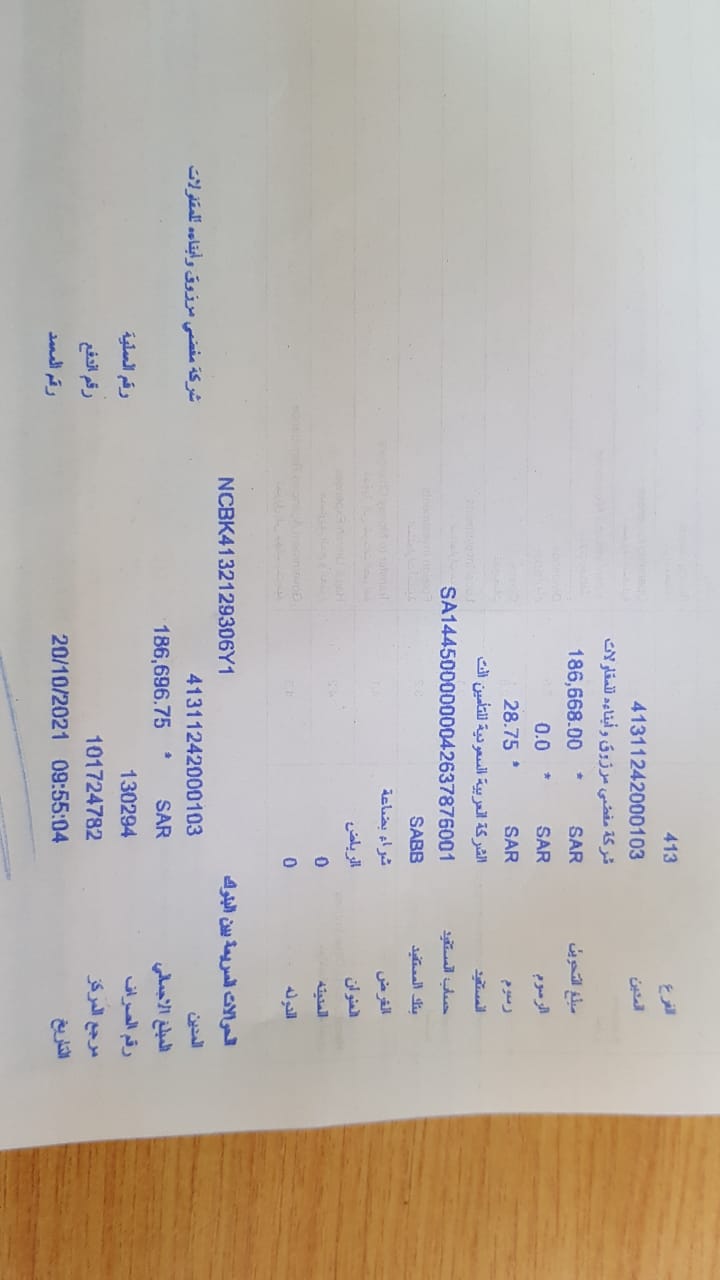 الفرع 413
المدين 41311242000103
شركة مفضي مرزوق وأبناءه للمقاولات
مبلغ التحويل 186,668.00 * SAR
الرسوم 0.0 * SAR
رسوم 28.75 * SAR
المستفيد الشركة العربية السعودية للتأمين الت
حساب المستفيد SA1445000000042637876001
بنك المستفيد SABB
الغرض شراء بضاعة
العنوان الرياض
المدينه 0
الدوله 0
الحوالات السريعة بين البنوك NCBK4132129306Y1
المدين 41311242000103 شركة مفضي مرزوق وأبناءه للمقاولات
المبلغ الاجمالي 186,696.75 * SAR
رقم الصراف 130294 رقم العملية
مرجع المركز 101724782 رقم الدفع
التاريخ 20/10/2021 09:55:04 رقم السند